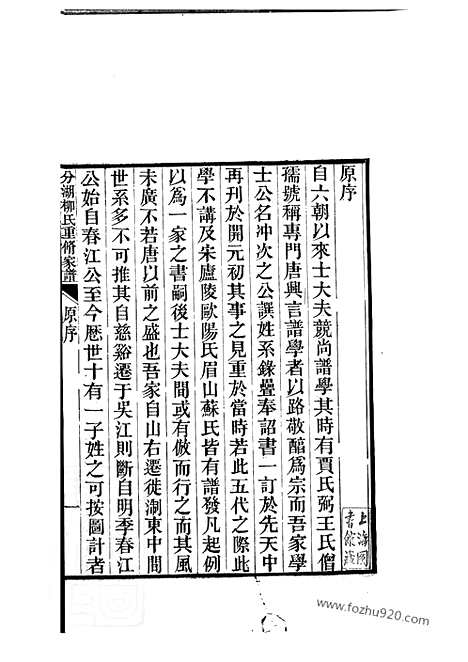 原序
自六朝以來士大夫競尚譜學其時有賈氏弼王氏僧
孺號稱專門唐興言譜學者以路敬淳爲宗而吾家學
士公名沖次之公譔姓系錄疊奉詔書一訂於先天中
再刊於開元初其事之見重於當時若此五代之際此
學不講及宋廬陵歐陽氏眉山蘇氏皆有譜發凡起例
以爲一家之書嗣後士大夫間或有倣而行之而其風
未廣不若唐以前之盛也吾家自山右遷徙淛東中間
世系多不可推其自慈谿遷于吳江則斷自明季春江
公始自春江公至今歷世十有一子姓之可按圖計者
分湖柳氏重脩家譜
原序
一
上海圖
書館藏
www.fozhu920.com